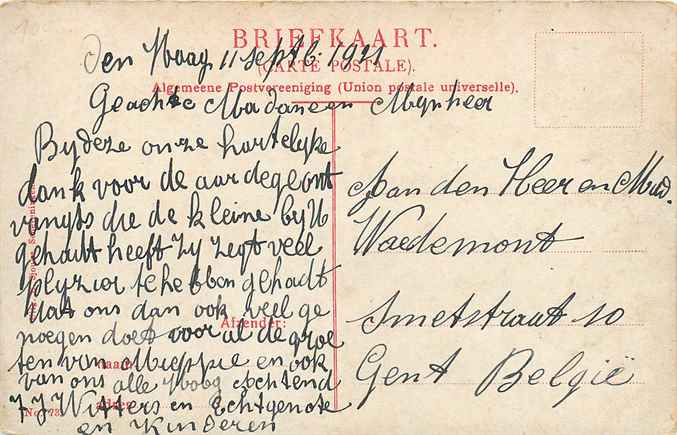 BRIEFKAART.
(CARTE POSTALE).
Algemeene Postvereeniging (Union postale universelle).
Den Haag 11 Septb. 1921
Geachte Madame en Mijnheer
Bij deze onze hartelijke
dank voor de aardege ont
vangts die de kleine bij U
gehadt heeft Zij zegt veel
plyzier te hebben gehadt
dat ons dan ook veel ge
noegen doet voor al de groe
ten van Mieppie en ook
van ons alle Hoog Achtend
J J Witters en Echtgenote
en Kinderen
Afzender:
Aan den Heer en Mad.
Waedemont
Smetstraat 10
Gent België